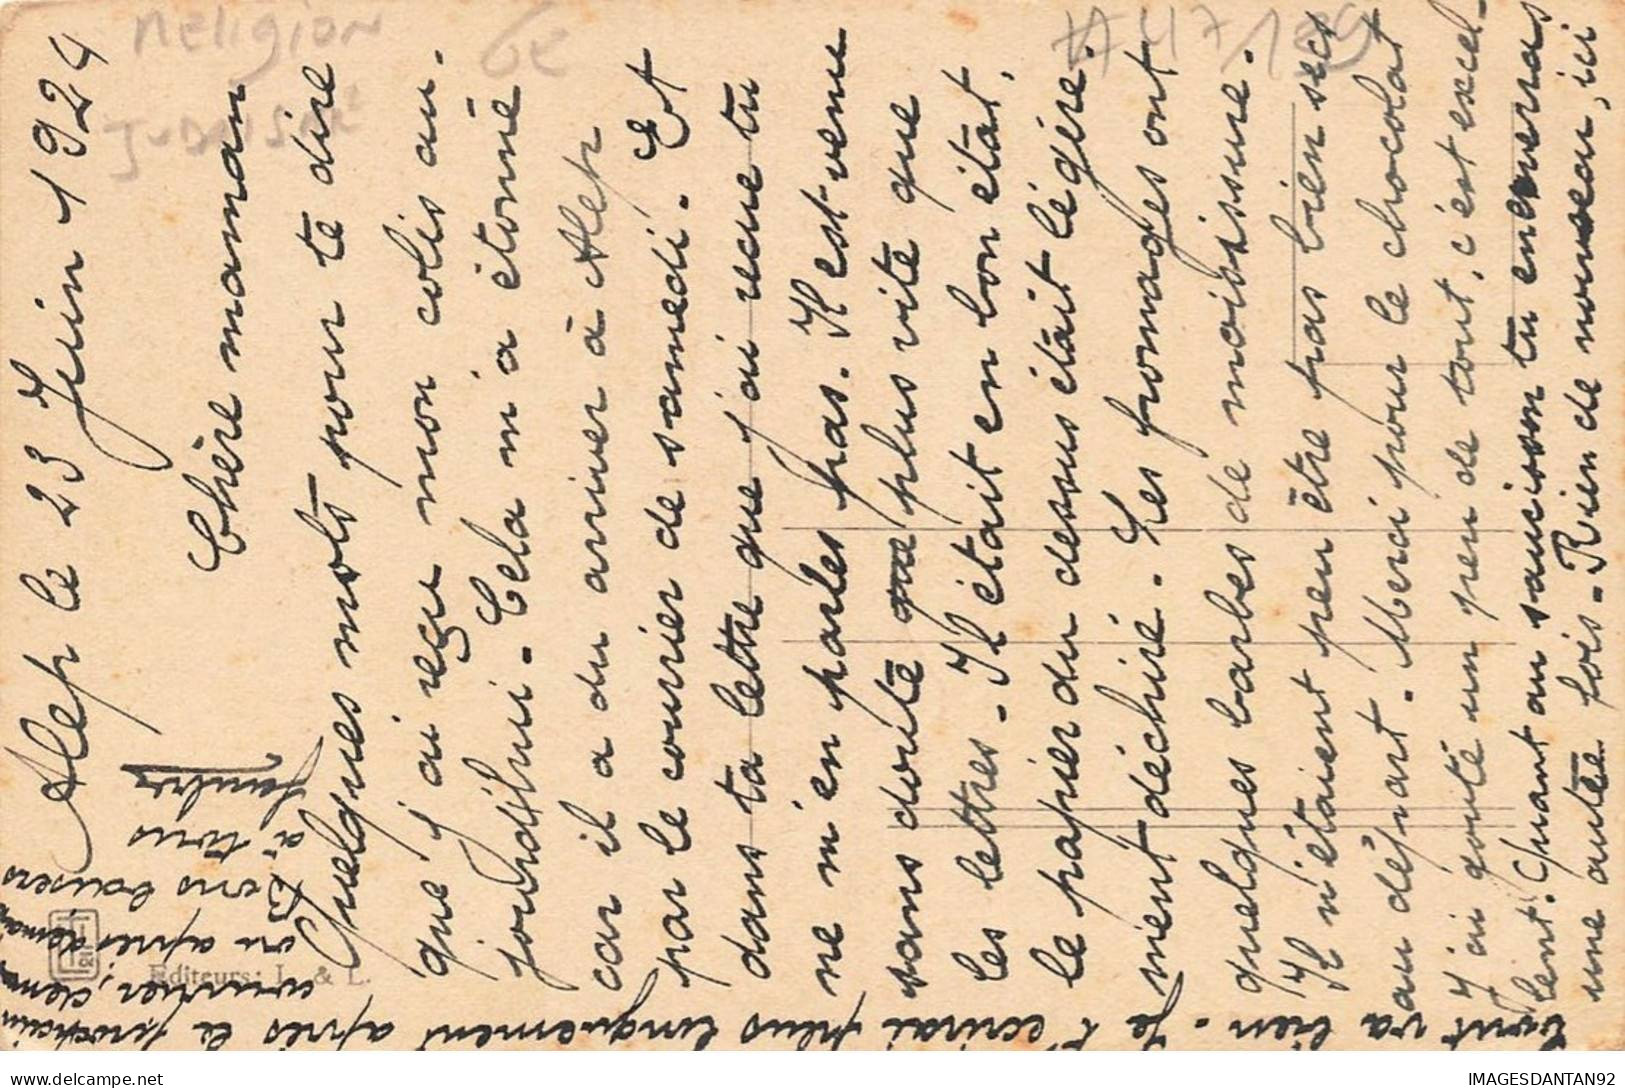 Religion
6€
#47/189
JUDAISME
Alep le 23 Juin 1924
Chère maman
Quelques mots pour te dire
que j'ai reçu mon colis au-
jourd'hui. Cela m'a étonné
car il a du arriver à Alep
par le courrier de samedi. Et
dans ta lettre que j'ai reçue tu
ne m'en parles pas. Il est venu
sans doute plus vite que
les lettres. Il était en bon état,
le papier du dessus était légère-
ment déchiré. Les fromages ont
quelques barbes de moisissure.
Il n'étaient peu être pas bien secs
au départ. Merci pour le chocolat
J'ai gouté un peu de tout, c'est excel-
lent. Quant au saucisson tu en enverras
une autre fois. Rien de nouveau, ici
tout va bien. Je t'écrirai plus longuement après le prochain
courrier, demain
ou après demain
Bons baisers
à tous
Editeurs: L. & L.
IMAGESDANTAN92